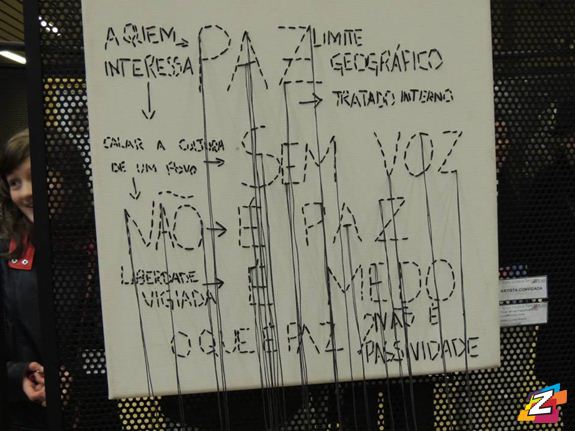 A QUEM INTERESSA → PAZ LIMITE GEOGRÁFICO
→ TRATADO INTERNO
CALAR A CULTURA DE UM POVO → SEM VOZ
NÃO → É PAZ
LIBERDADE VIGIADA → É MEDO
O QUE É PAZ? NÃO É PASSIVIDADE
ARTISTA CONVIDADA
Z